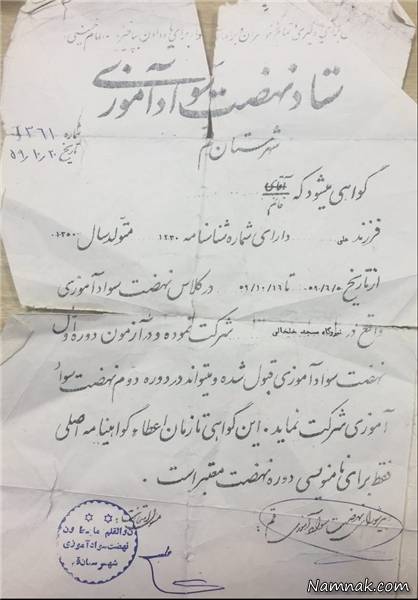 ستاد نهضت سوادآموزی
شهرستان قم
شماره ۱۳۶۱
تاریخ ۵۹/۱۰/۲۰
گواهی میشود که آقای
خانم
فرزند علی دارای شماره شناسنامه ۱۲۳۰ متولد سال ۱۳۵۰
از تاریخ ۵۹/۶/۵ تا ۵۹/۱۰/۱۶ در کلاس نهضت سوادآموزی
واقع در مسجد خلخالی شرکت نموده و در آزمون دوره اول
نهضت سوادآموزی قبول شده و میتواند در دوره دوم نهضت سواد
آموزی شرکت نماید. این گواهی تا زمان اعطاء گواهینامه اصلی
فقط برای نامنویسی دوره نهضت معتبر است.
نهضت سوادآموزی قم
ن والقلم و ما یسطرون
نهضت سوادآموزی
شهرستان قم
Namnak.com